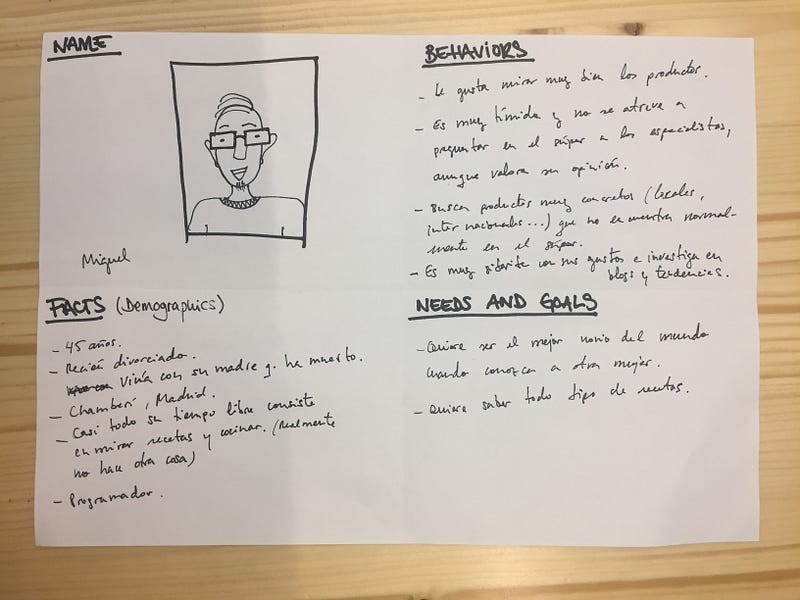 NAME
Miguel
BEHAVIORS
- Le gusta mirar muy bien los productos.
- Es muy tímido y no se atreve a
preguntar en el súper a los especialistas,
aunque valora su opinión.
- Busca productos muy concretos (locales,
internacionales...) que no encuentra normal-
mente en el súper.
- Es muy sibarita con sus gustos e investiga en
blogs y tendencias.
FACTS (Demographics)
- 45 años.
- Recién divorciado.
Vivía con su madre q. ha muerto.
- Chamberí, Madrid.
- Casi todo su tiempo libre consiste
en mirar recetas y cocinar. (Realmente
no hace otra cosa)
- Programador.
NEEDS AND GOALS
- Quiere ser el mejor novio del mundo
cuando conozca a otra mujer.
- Quiere saber todo tipo de recetas.